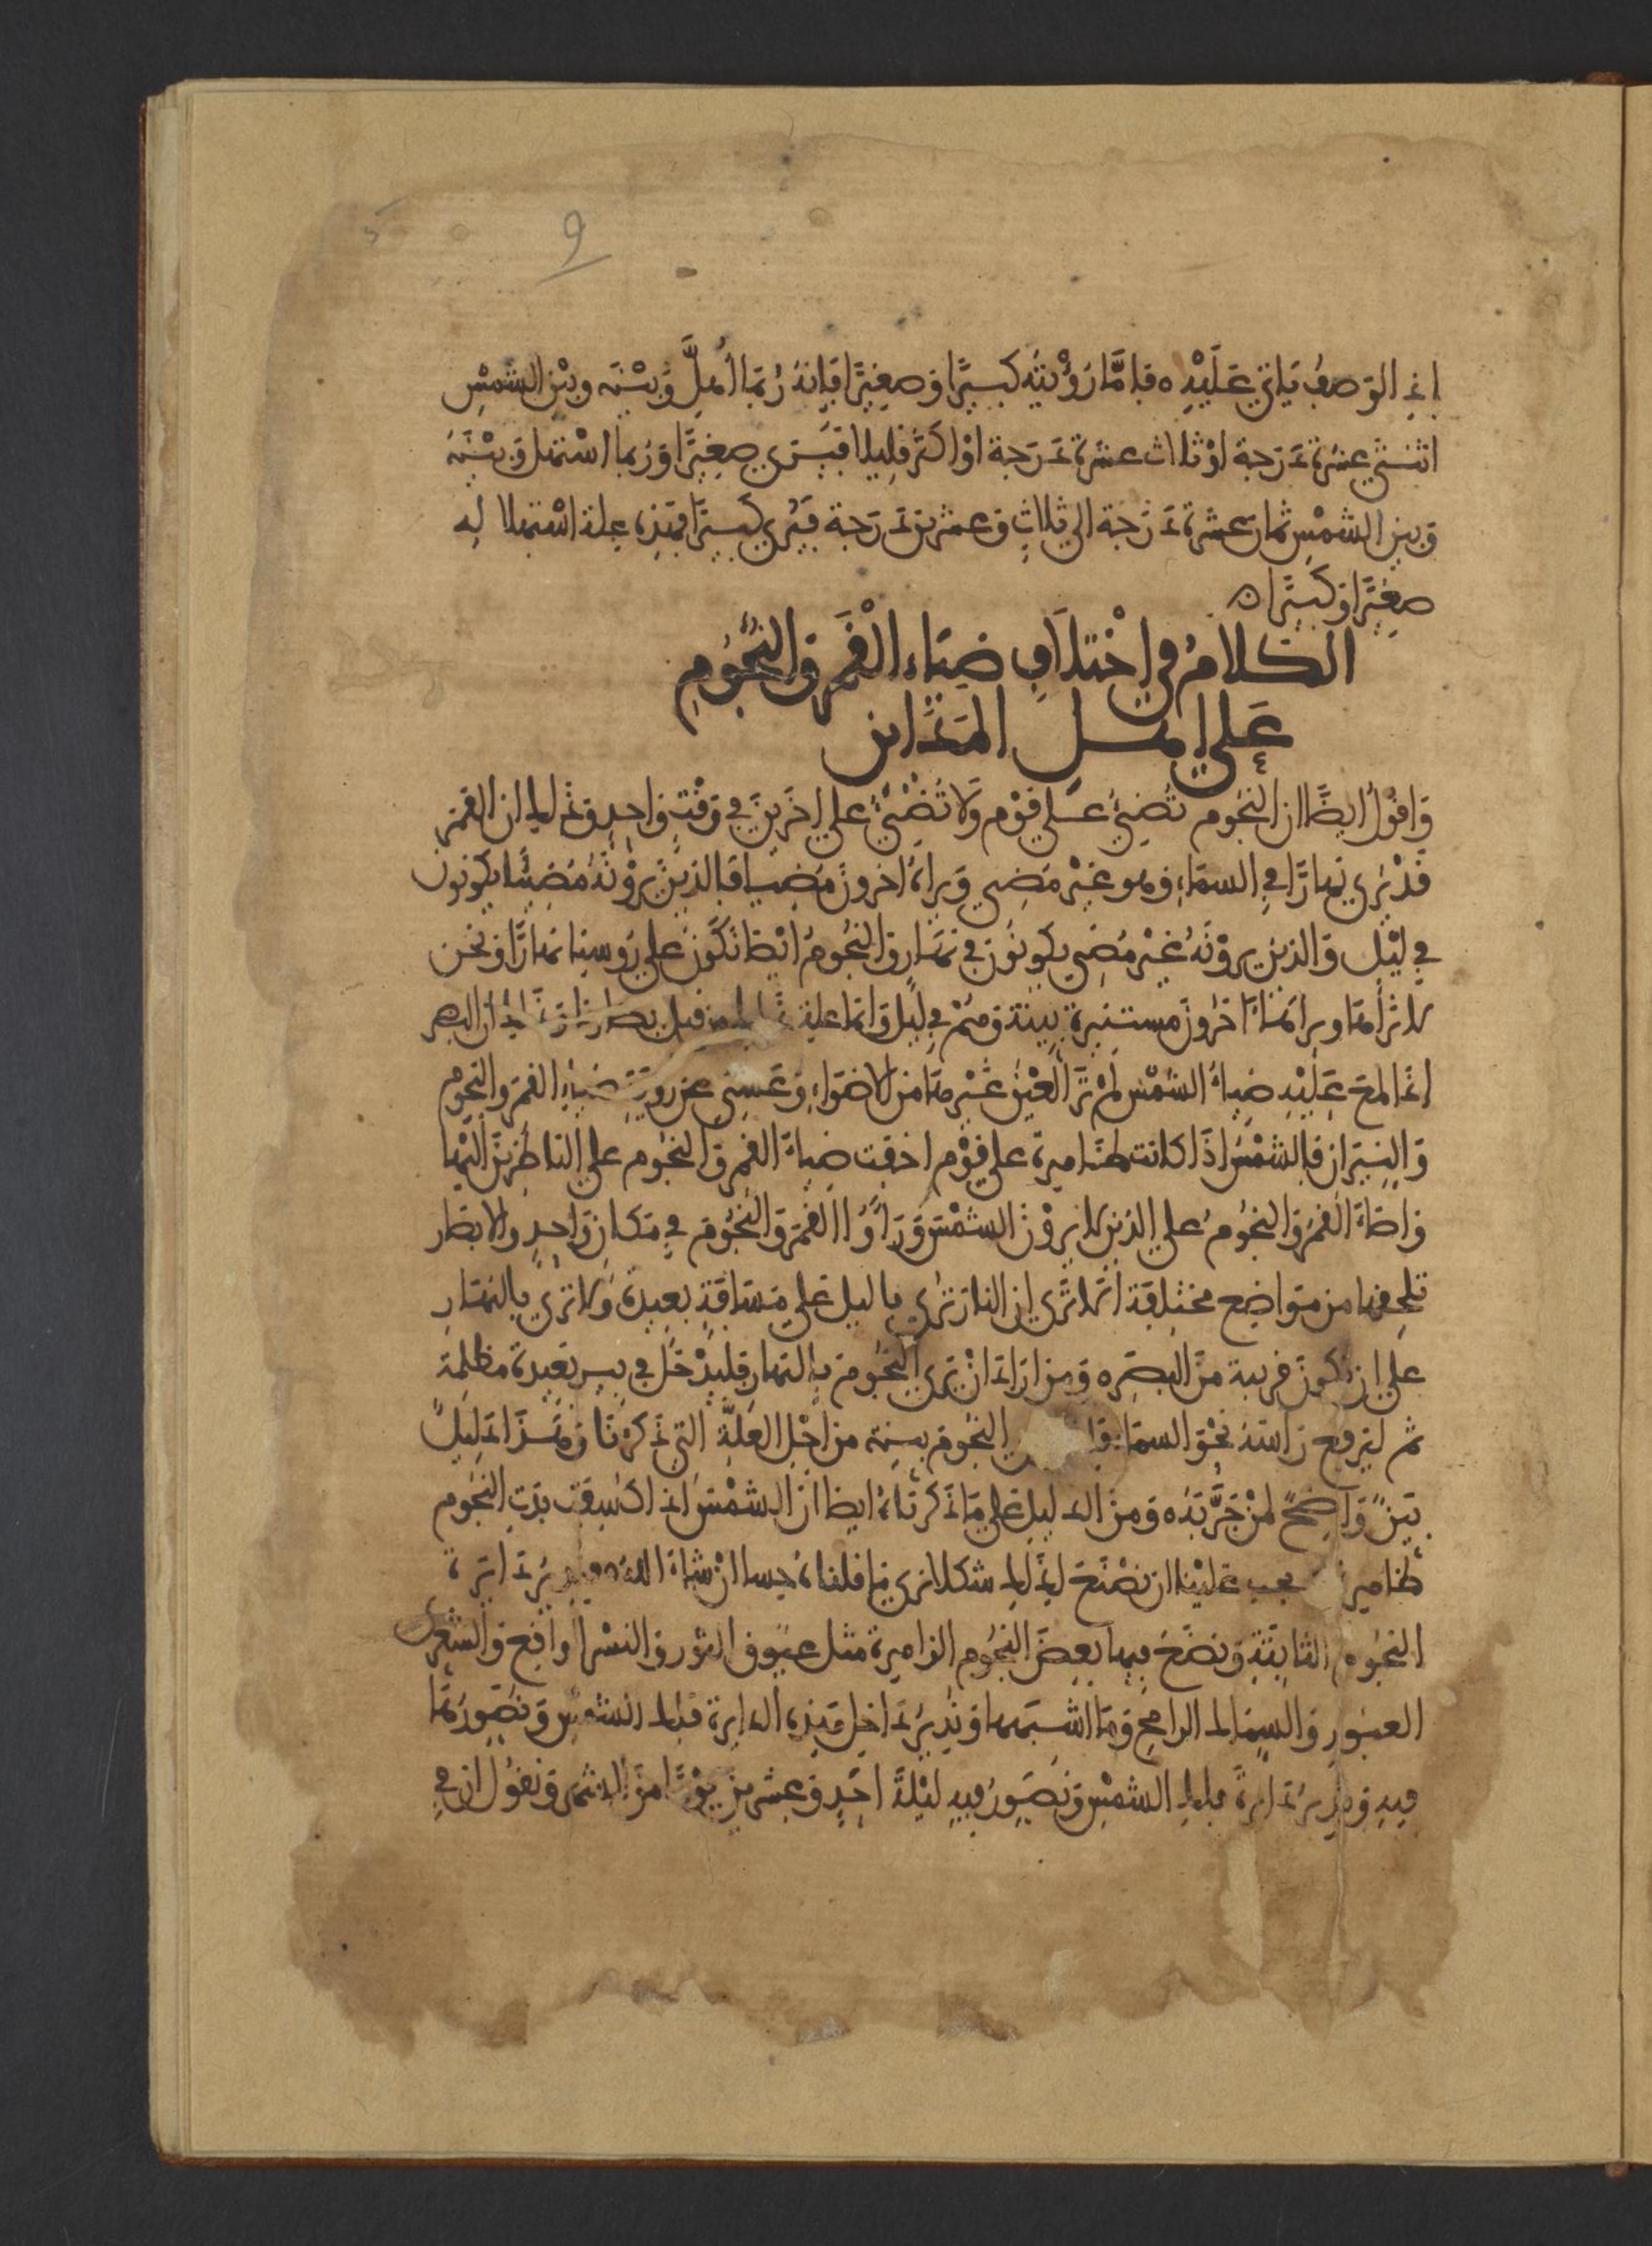 9
اذ الوصف ياتي عليه ه فاما رؤيته كبيرا وصغيرا فانه ربما اهل وبينه وبين الشمس
اثنتي عشرة درجة او ثلاث عشرة درجة او اكثر قليلا فيرى صغيرا وربما استهل وبينه
وبين الشمس ثمان عشرة درجة الى ثلاث وعشرين درجة فيرى كبيرا فهذه علة استهلاله
صغيرا وكبيرا ه
الكلام في اختلاف ضياء القمر والنجوم
على اهل المدائن
وَاقول ايضًا ان النجوم تضيئ على قوم ولا تضيئ على اخرين في وقت واحد وذلك ان القمر
قد يرى نهارا في السماء وهو غير مضي ويراه اخرون مضيا فالذين يرونه مضيئا يكونون
في ليل والذين يرونه غير مضي يكونون في نهار والنجوم ايضا تكون على روسنا نهارا ونحن
لا نراها ويراها اخرون مستنيرة بينة وهم في ليل وانما علة ذلك من قبل ابصارنا وذلك ان البصر
اذا لمح عليه ضياء الشمس لم تر العين غيرها من الاضواء وعسي عن روية ضياء القمر والنجوم
والنيران فالشمس اذا كانت ظاهرة على قوم اخفت ضياء القمر والنجوم على الناظرين اليها
واضاء القمر والنجوم على الذين لا يرون الشمس وراوا القمر والنجوم في مكان واحد والابصار
تلحقها من مواضع مختلفة الا ترى ان النار ترى بالليل على مسافة بعيدة ولا ترى بالنهار
على ان تكون قريبة من البصر ه ومن اراد ان يرى النجوم بالنهار فليدخل في بير بعيدة مظلمة
ثم ليرفع راسه نحو السما النجوم بينة من اجل العلة التي ذكرنا وهذا دليل
بين واضح لمن جربه ه ومن الدليل على ما ذكرناه ايضا ان الشمس اذا كسفت بدت النجوم
ظاهرة يجب علينا ان نضع لذلك شكلا نرى ما قلناه حسا ان شاء الله دايرة
النجوم الثابتة ونضع فيها بعض النجوم الزاهرة مثل عيوق الثور والنسر الواقع والشعرى
العبور والسماك الرامح وما اشبهها وندير داخل هذه الدايرة فلك الشمس ونصورها
فيه ونديـر دايرة فلك الشمس ونصور فيه ليلة احد وعشرين يوما من الشهر ونقول ان في